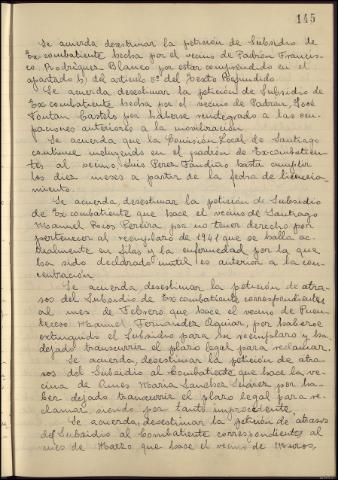 145
Se acuerda desestimar la petición de Subsidio de
Ex combatiente hecha por el vecino de Padrón Francis-
co Rodríguez Blanco por estar comprendido en el
apartado b) del artículo 5º del Texto Refundido.
Se acuerda desestimar la petición de Subsidio de
Ex combatiente hecha por el vecino de Padrón, José
Fontan Castels por haberse reintegrado a las ocu-
paciones anteriores a la movilización.
Se acuerda que la Comisión Local de Santiago
continue incluyendo en el padrón de Excombatien-
tes al vecino Luis Perez Fandiño hasta cumplir
los diez meses a partir de la fecha de licencia-
miento.
Se acuerda, desestimar la petición de Subsidio
de Ex combatiente que hace el vecino de Santiago
Manuel Rios Pereira por no tener derecho por
pertenecer al reemplazo de 1941 que se halla ac-
tualmente en filas y la enfermedad por la que
ha sido declarado inutil es anterior a la con-
centración.
Se acuerda, desestimar la petición de atra-
sos del Subsidio de Ex combatiente correspondientes
al mes de Febrero que hace el vecino de Puen-
teceso Manuel Fernandez Aguiar, por haberse
extinguido el Subsidio para su reemplazo y ha
dejado transcurrir el plazo legal para reclamar.
Se acuerda, desestimar la petición de atra-
sos del Subsidio al Combatiente que hace la ve-
cina de Ames Maria Sanchez Suárez por ha-
ber dejado transcurrir el plazo legal para re-
clamar, siendo por tanto improcedente.
Se acuerda, desestimar la petición de atrasos
del Subsidio al Combatiente correspondientes al
mes de Marzo que hace el vecino de Muros,